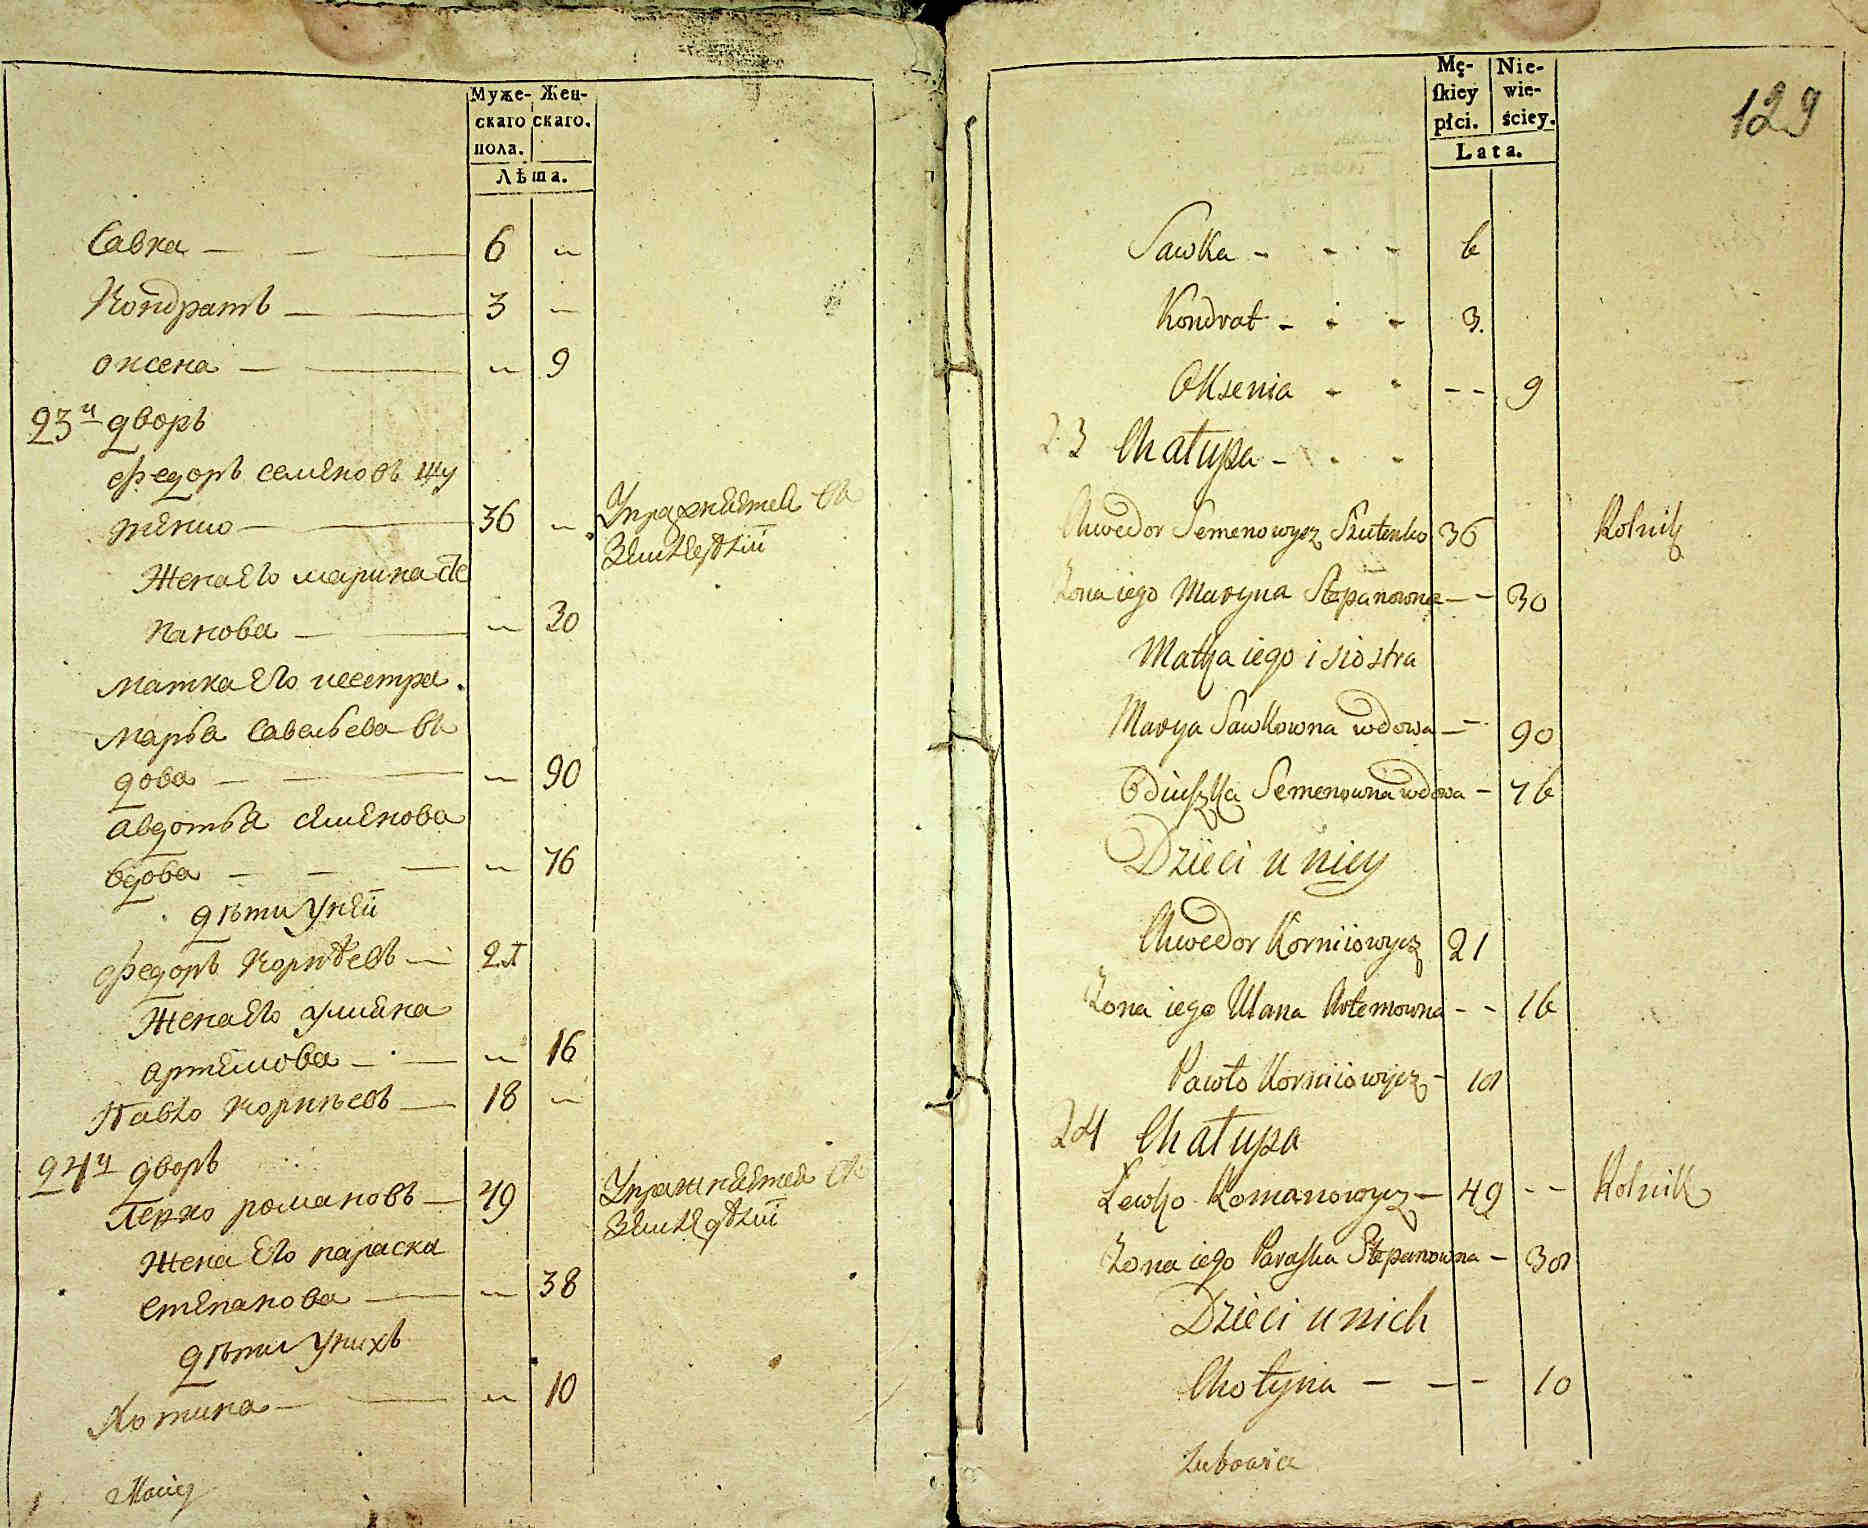 Муже- Жен-
скаго скаго.
пола.
Лѣта.
Савка — — — 6 „
Кондратъ — — 3 „
оксена — — „ 9
23й дворъ
федоръ семѣновъ шу
тенко — 36 „ Упражняется въ
Земледѣлiи
Жена его марина сте
панова — — „ 30
Матка его исестра.
Марья Савельева в
дова — — — „ 90
авдотья семенова
вдова — — — „ 76
дѣти у ней
федоръ Корнѣевъ — 21
Жена его улияна
артемова — — „ 16
Павло Корнѣевъ — 18 „
24й дворъ
Левко романовъ — 49 Упражняется въ
Земледѣлiи
Жена его параска
степанова — „ 38
дѣти у нихъ
Хотина — — „ 10
129
Mę- Nie-
skiey wie-
płci. ściey.
Lata.
Sawka - - - 6
Kondrat - - - 3.
Oksenia - - - - 9
23 Chałupa - - -
Chwedor Semenowycz Szutenko 36 Rolnik
Żona iego Maryna Stepanowna - - 30
Matka iego i siostra
Marya Sawkowna wdowa - - 90
Odiuszka Semenowna wdowa - 76
Dzieci u niey
Chwedor Korniiowycz 21
Żona iego Ulana Artemowna - - 16
Pawło Korniiowycz - 18
24 Chałupa
Lewko Romanowycz - 49 - - Rolnik
Żona iego Paraska Stepanowna - 38
Dzieci u nich
Chotyna - - - 10